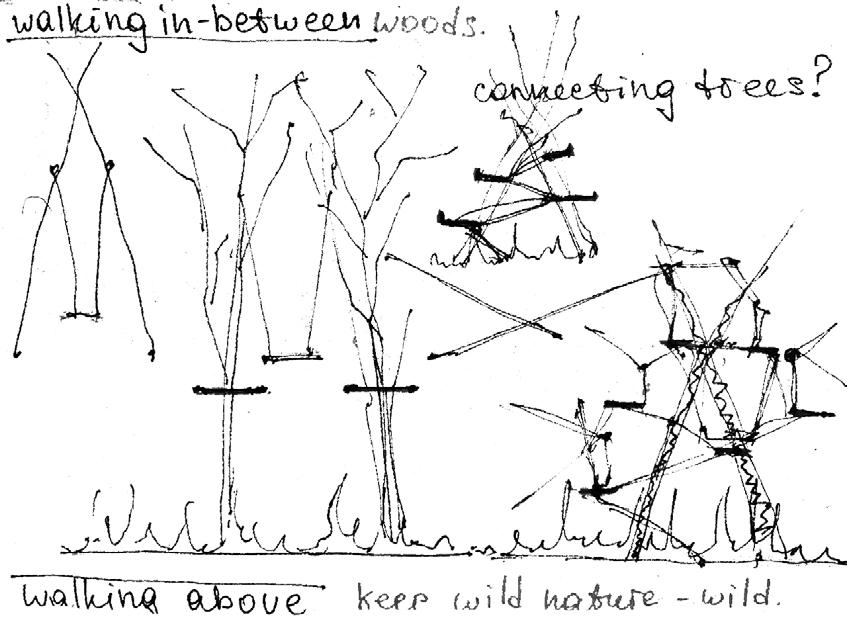 walking in-between woods.
connecting trees?
walking above keep wild nature - wild.